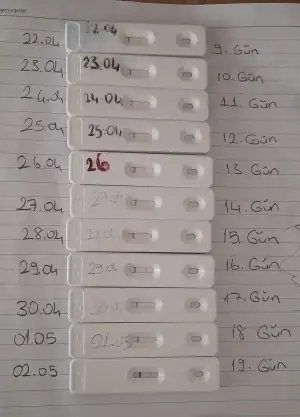 22.04 22.04 9. Gün
23.04 23.04 10. Gün
24.04 24.04 11. Gün
25.04 25.04 12. Gün
26.04 26 13 Gün
27.04 27.04 14. Gün
28.04 28.04 15. Gün
29.04 29.04 16. Gün
30.04 30.04 17. Gün
01.05 01.05 18 Gün
02.05 19. Gün